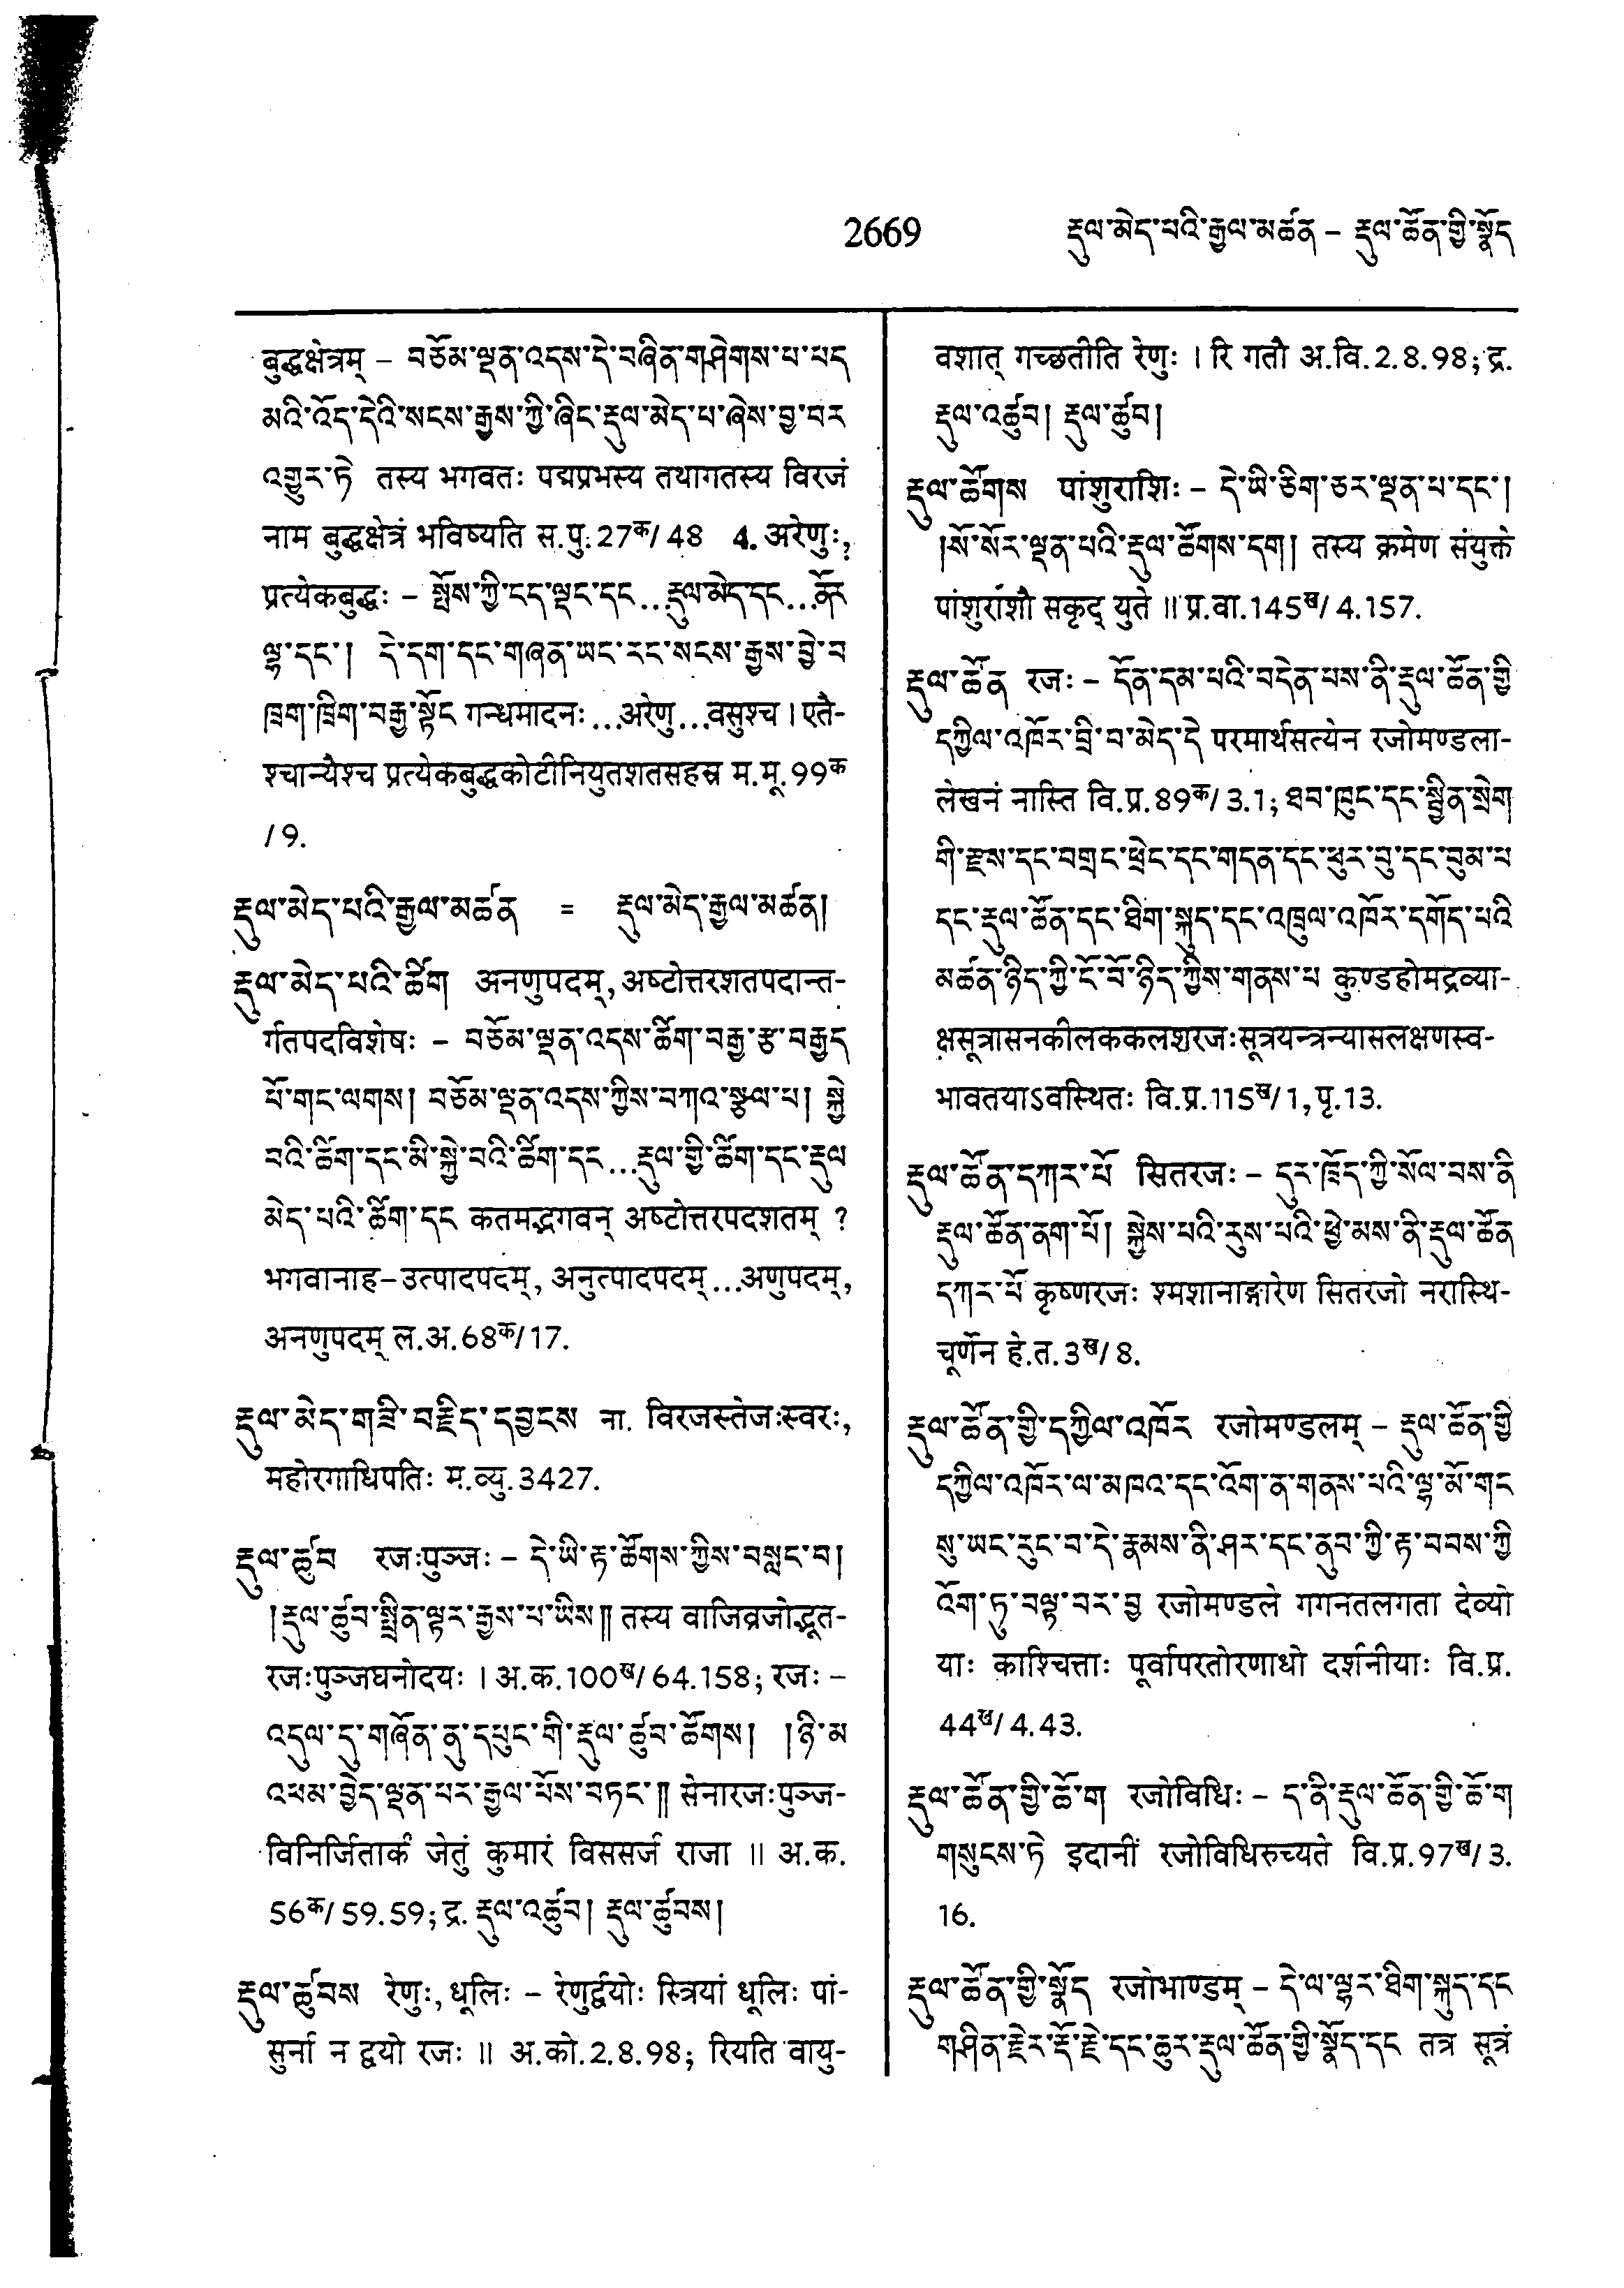 2669
རྡུལ་མེད་པའི་རྒྱལ་མཚན – རྡུལ་ཚོན་གྱི་སྣོད
बुद्धक्षेत्रम् – བཅོམ་ལྡན་འདས་དེ་བཞིན་གཤེགས་པ་པད
མའི་འོད་དེའི་སངས་རྒྱས་ཀྱི་ཞིང་རྡུལ་མེད་པ་ཞེས་བྱ་བར
འགྱུར་ཏེ तस्य भगवतः पद्मप्रभस्य तथागतस्य विरजं
नाम बुद्धक्षेत्रं भविष्यति स.पु.27क/48 4. अरेणुः,
प्रत्येकबुद्धः – སྤོས་ཀྱི་ངད་ལྡང་དང...རྡུལ་མེད་དང...ནོར
ལྷ་དང་། དེ་དག་དང་གཞན་ཡང་རང་སངས་རྒྱས་བྱེ་བ
ཁྲག་ཁྲིག་བརྒྱ་སྟོང गन्धमादनः...अरेणु...वसुश्च । एतै-
श्चान्यैश्च प्रत्येकबुद्धकोटीनियुतशतसहस्र म.मू.99क
/9.
རྡུལ་མེད་པའི་རྒྱལ་མཚན = རྡུལ་མེད་རྒྱལ་མཚན།
རྡུལ་མེད་པའི་ཚིག अनणुपदम्, अष्टोत्तरशतपदान्त-
र्गतपदविशेषः – བཅོམ་ལྡན་འདས་ཚིག་བརྒྱ་རྩ་བརྒྱད
པོ་གང་ལགས། བཅོམ་ལྡན་འདས་ཀྱིས་བཀའ་སྩལ་པ། སྐྱེ
བའི་ཚིག་དང་མི་སྐྱེ་བའི་ཚིག་དང...རྡུལ་གྱི་ཚིག་དང་རྡུལ
མེད་པའི་ཚིག་དང कतमद्भगवन् अष्टोत्तरपदशतम् ?
भगवानाह–उत्पादपदम्, अनुत्पादपदम्...अणुपदम्,
अनणुपदम् ल.अ.68क/17.
རྡུལ་མེད་གཟི་བརྗིད་དབྱངས ना. विरजस्तेजःस्वरः,
महोरगाधिपतिः म.व्यु.3427.
རྡུལ་ཚུབ रजःपुञ्जः – དེ་ཡི་རྟ་ཚོགས་ཀྱིས་བསླང་བ།
།རྡུལ་ཚུབ་སྤྲིན་ལྟར་རྒྱས་པ་ཡིས༎ तस्य वाजिव्रजोद्भूत-
रजःपुञ्जघनोदयः । अ.क.100ख/64.158; रजः –
འདུལ་དུ་གཞོན་ནུ་དཔུང་གི་རྡུལ་ཚུབ་ཚོགས། །ཉི་མ
འཕམ་བྱེད་ལྡན་པར་རྒྱལ་པོས་བཏང་༎ सेनारजःपुञ्ज-
विनिर्जितार्कं जेतुं कुमारं विससर्ज राजा ॥ अ.क.
56क/59.59; द्र. རྡུལ་འཚུབ། རྡུལ་ཚུབས།
རྡུལ་ཚུབས रेणुः, धूलिः – रेणुर्द्वयोः स्त्रियां धूलिः पां-
सुर्ना न द्वयो रजः ॥ अ.को.2.8.98; रियति वायु-
वशात् गच्छतीति रेणुः । रि गतौ अ.वि.2.8.98; द्र.
རྡུལ་འཚུབ། རྡུལ་ཚུབ།
རྡུལ་ཚོགས पांशुराशिः – དེ་ཡི་ཅིག་ཅར་ལྡན་པ་དང་།
།སོ་སོར་ལྡན་པའི་རྡུལ་ཚོགས་དག། तस्य क्रमेण संयुक्ते
पांशुराशौ सकृद् युते ॥ प्र.वा.145ख/4.157.
རྡུལ་ཚོན रजः – དོན་དམ་པའི་བདེན་པས་ནི་རྡུལ་ཚོན་གྱི
དཀྱིལ་འཁོར་བྲི་བ་མེད་དེ परमार्थसत्येन रजोमण्डला-
लेखनं नास्ति वि.प्र.89क/3.1; ཐབ་ཁུང་དང་སྦྱིན་སྲེག
གི་རྫས་དང་བགྲང་ཕྲེང་དང་གདན་དང་ཕུར་བུ་དང་བུམ་པ
དང་རྡུལ་ཚོན་དང་ཐིག་སྐུད་དང་འཁྲུལ་འཁོར་དགོད་པའི
མཚན་ཉིད་ཀྱི་ངོ་བོ་ཉིད་ཀྱིས་གནས་པ कुण्डहोमद्रव्या-
क्षसूत्रासनकीलककलशरजःसूत्रयन्त्रन्यासलक्षणस्व-
भावतयाऽवस्थितः वि.प्र.115ख/1, पृ.13.
རྡུལ་ཚོན་དཀར་པོ सितरजः – དུར་ཁྲོད་ཀྱི་སོལ་བས་ནི
རྡུལ་ཚོན་ནག་པོ། སྐྱེས་པའི་རུས་པའི་ཕྱེ་མས་ནི་རྡུལ་ཚོན
དཀར་པོ कृष्णरजः श्मशानाङ्गारेण सितरजो नरास्थि-
चूर्णेन हे.त.3ख/8.
རྡུལ་ཚོན་གྱི་དཀྱིལ་འཁོར रजोमण्डलम् – རྡུལ་ཚོན་གྱི
དཀྱིལ་འཁོར་ལ་མཁའ་དང་འོག་ན་གནས་པའི་ལྷ་མོ་གང
སུ་ཡང་རུང་བ་དེ་རྣམས་ནི་ཤར་དང་ནུབ་ཀྱི་རྟ་བབས་ཀྱི
འོག་ཏུ་བལྟ་བར་བྱ रजोमण्डले गगनतलगता देव्यो
याः काश्चित्ताः पूर्वापरतोरणाधो दर्शनीयाः वि.प्र.
44ख/4.43.
རྡུལ་ཚོན་གྱི་ཆོ་ག रजोविधिः – ད་ནི་རྡུལ་ཚོན་གྱི་ཆོ་ག
གསུངས་ཏེ इदानीं रजोविधिरुच्यते वि.प्र.97ख/3.
16.
རྡུལ་ཚོན་གྱི་སྣོད रजोभाण्डम् – དེ་ལ་ལྷར་ཐིག་སྐུད་དང
གཤིན་རྗེར་རྡོ་རྗེ་དང་ཆུར་རྡུལ་ཚོན་གྱི་སྣོད་དང तत्र सूत्रं